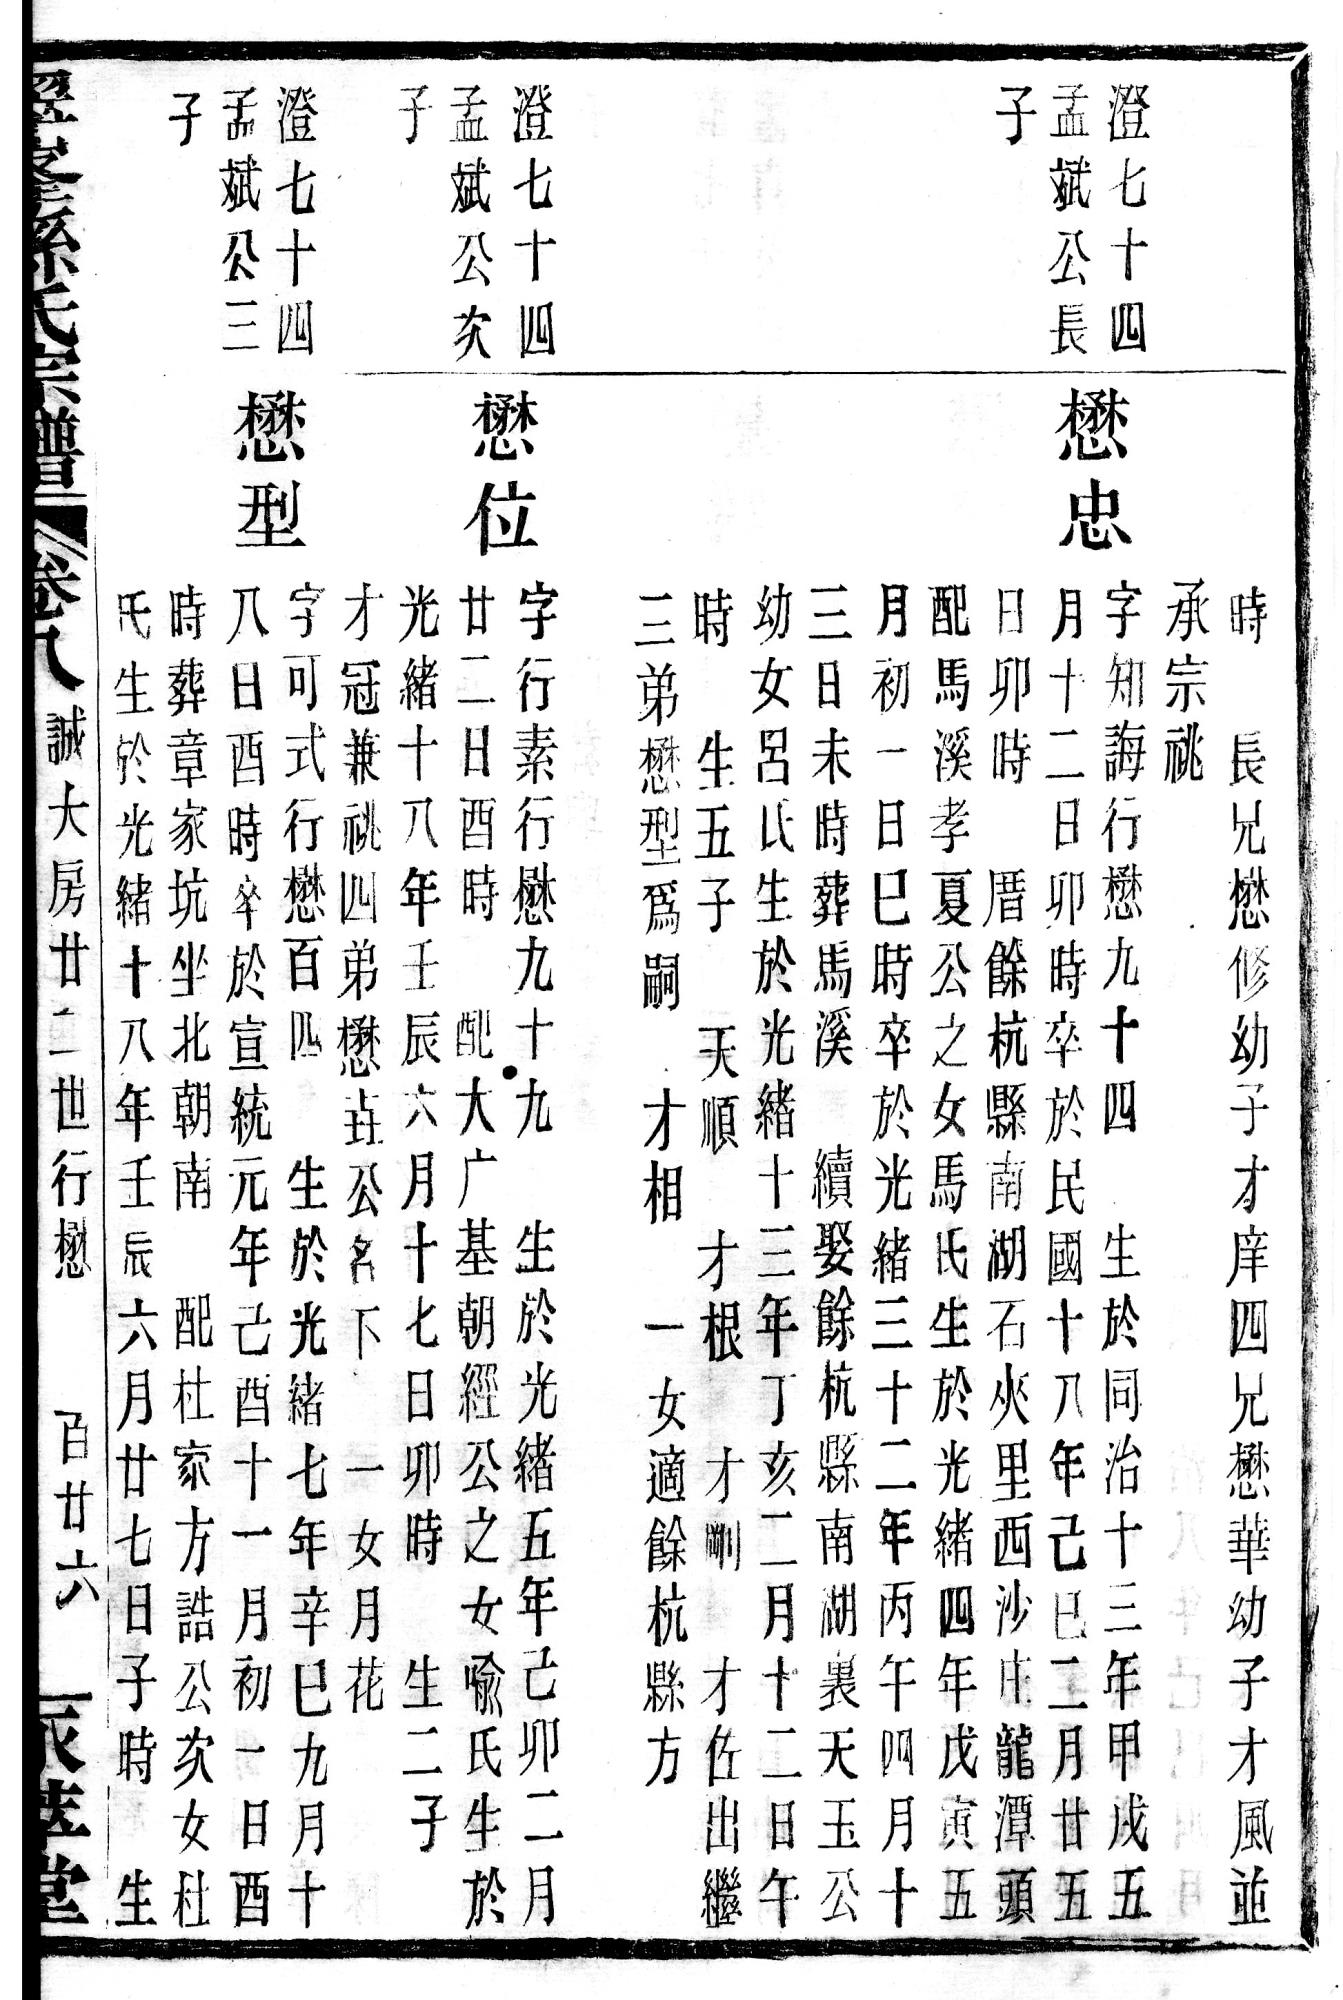 時　長兄懋修幼子才庠四兄懋華幼子才風並
承宗祧
澄七十四
孟斌公長
子
懋忠
字知誨行懋九十四　生於同治十三年甲戌五
月十二日卯時卒於民國十八年己巳二月廿五
日卯時　厝餘杭縣南湖石夾里西沙庄龍潭頭
配馬溪孝夏公之女馬氏生於光緒四年戊寅五
月初一日巳時卒於光緒三十二年丙午四月十
三日未時葬馬溪　續娶餘杭縣南湖裏天玉公
幼女呂氏生於光緒十三年丁亥二月十二日午
時　生五子　天順　才根　才剛　才佐出繼
三弟懋型爲嗣　才相　一女適餘杭縣方
澄七十四
孟斌公次
子
懋位
字行素行懋九十九　生於光緒五年己卯二月
廿二日酉時　配大广基朝經公之女喻氏生於
光緒十八年壬辰六月十七日卯時　生二子
才冠兼祧四弟懋垚公名下　一女月花
澄七十四
孟斌公三
子
懋型
字可式行懋百四　生於光緒七年辛巳九月十
八日酉時卒於宣統元年己酉十一月初一日酉
時葬章家坑坐北朝南　配杜家方誥公次女杜
氏生於光緒十八年壬辰六月廿七日子時　生
孫氏宗譜　卷八　誠大房廿二世行懋　百廿六　萃堂